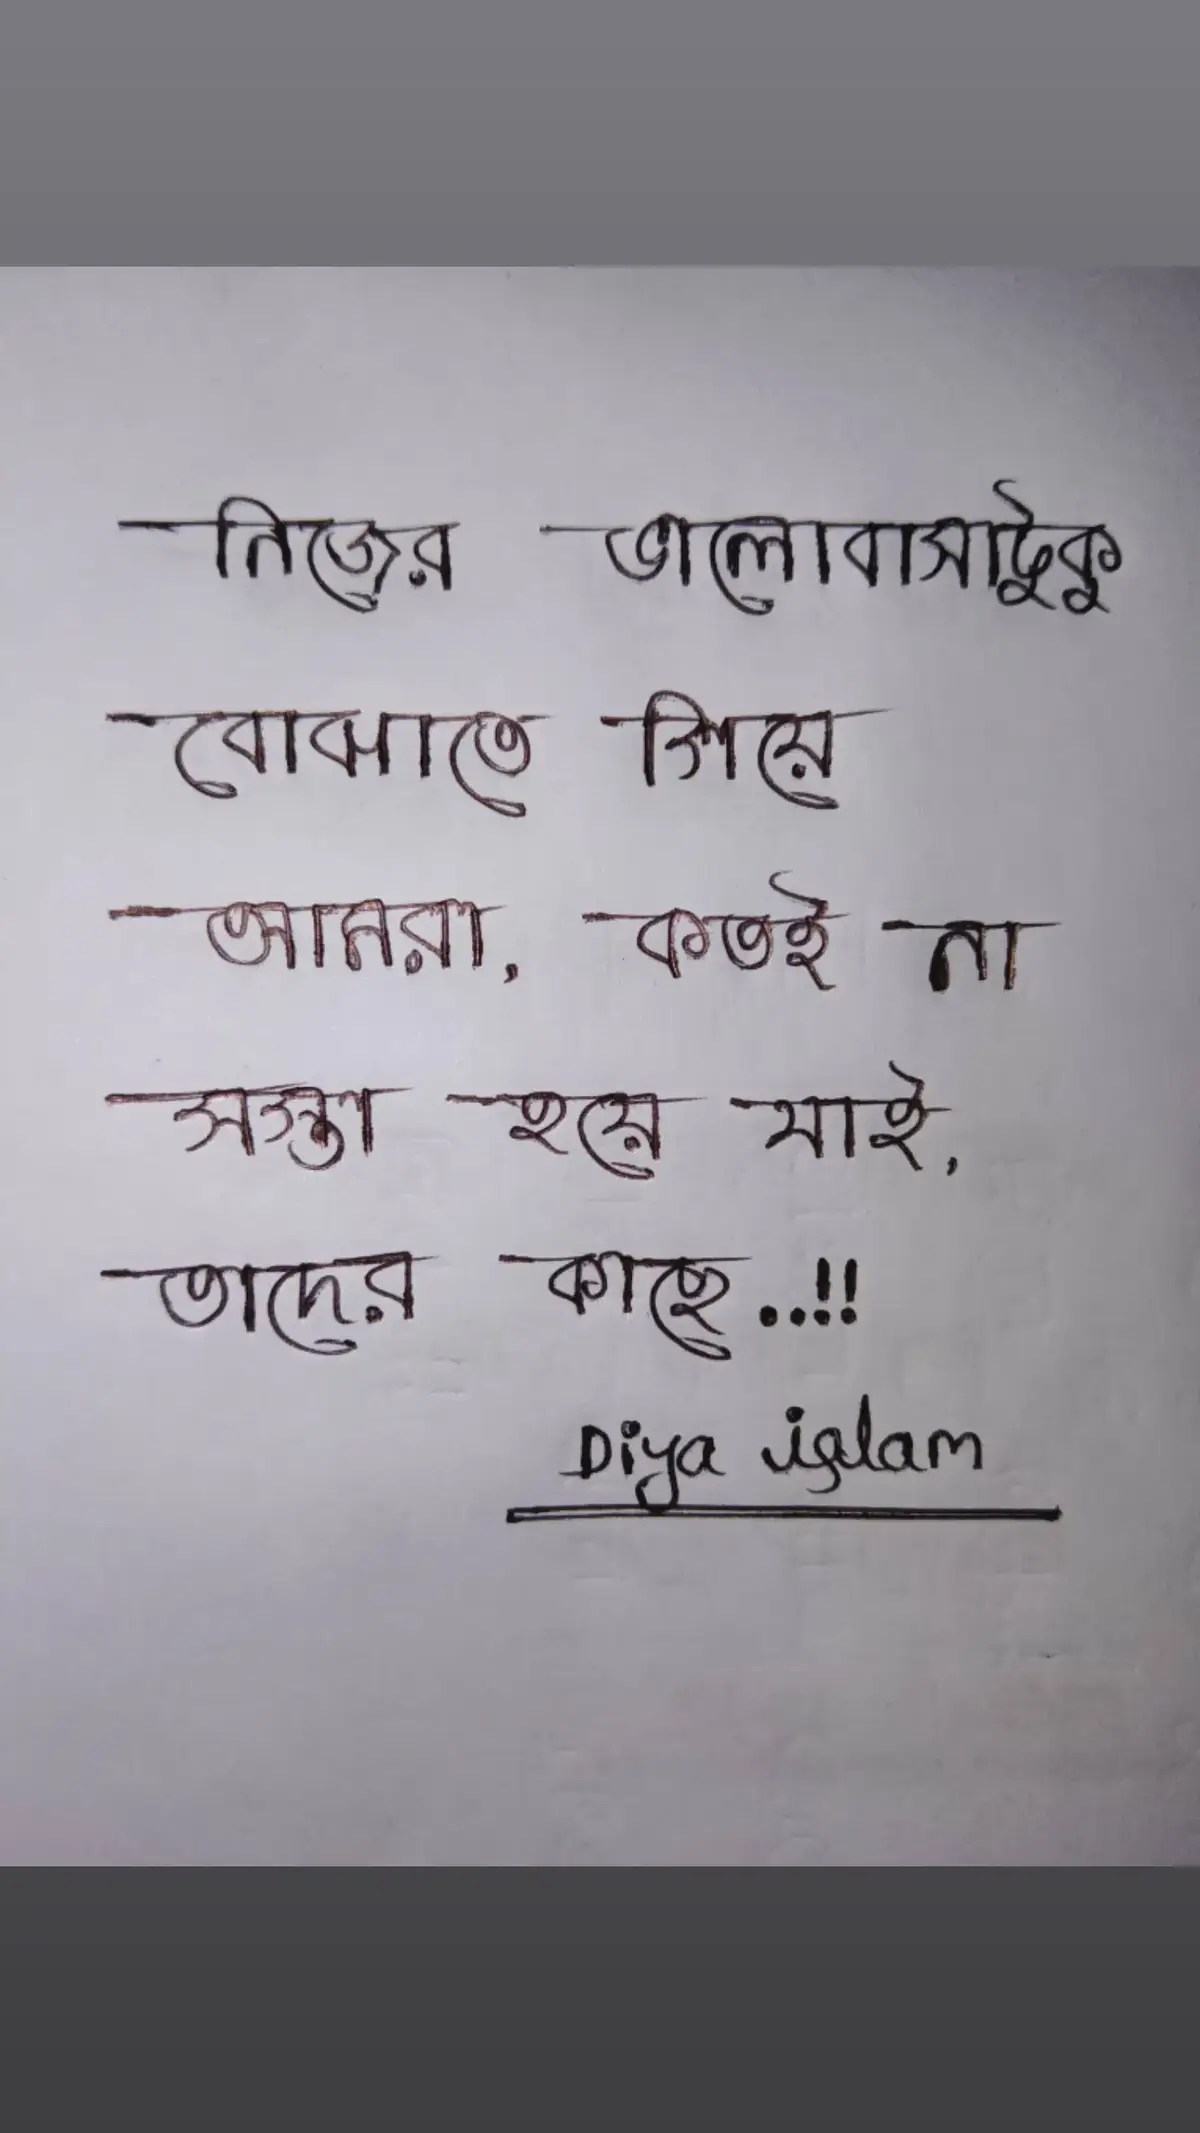 নিজের ভালোবাসাটুকু
বোঝাতে গিয়ে
আমরা, কতই না
সস্তা হয়ে যাই,
তাদের কাছে..!!
Diya islam